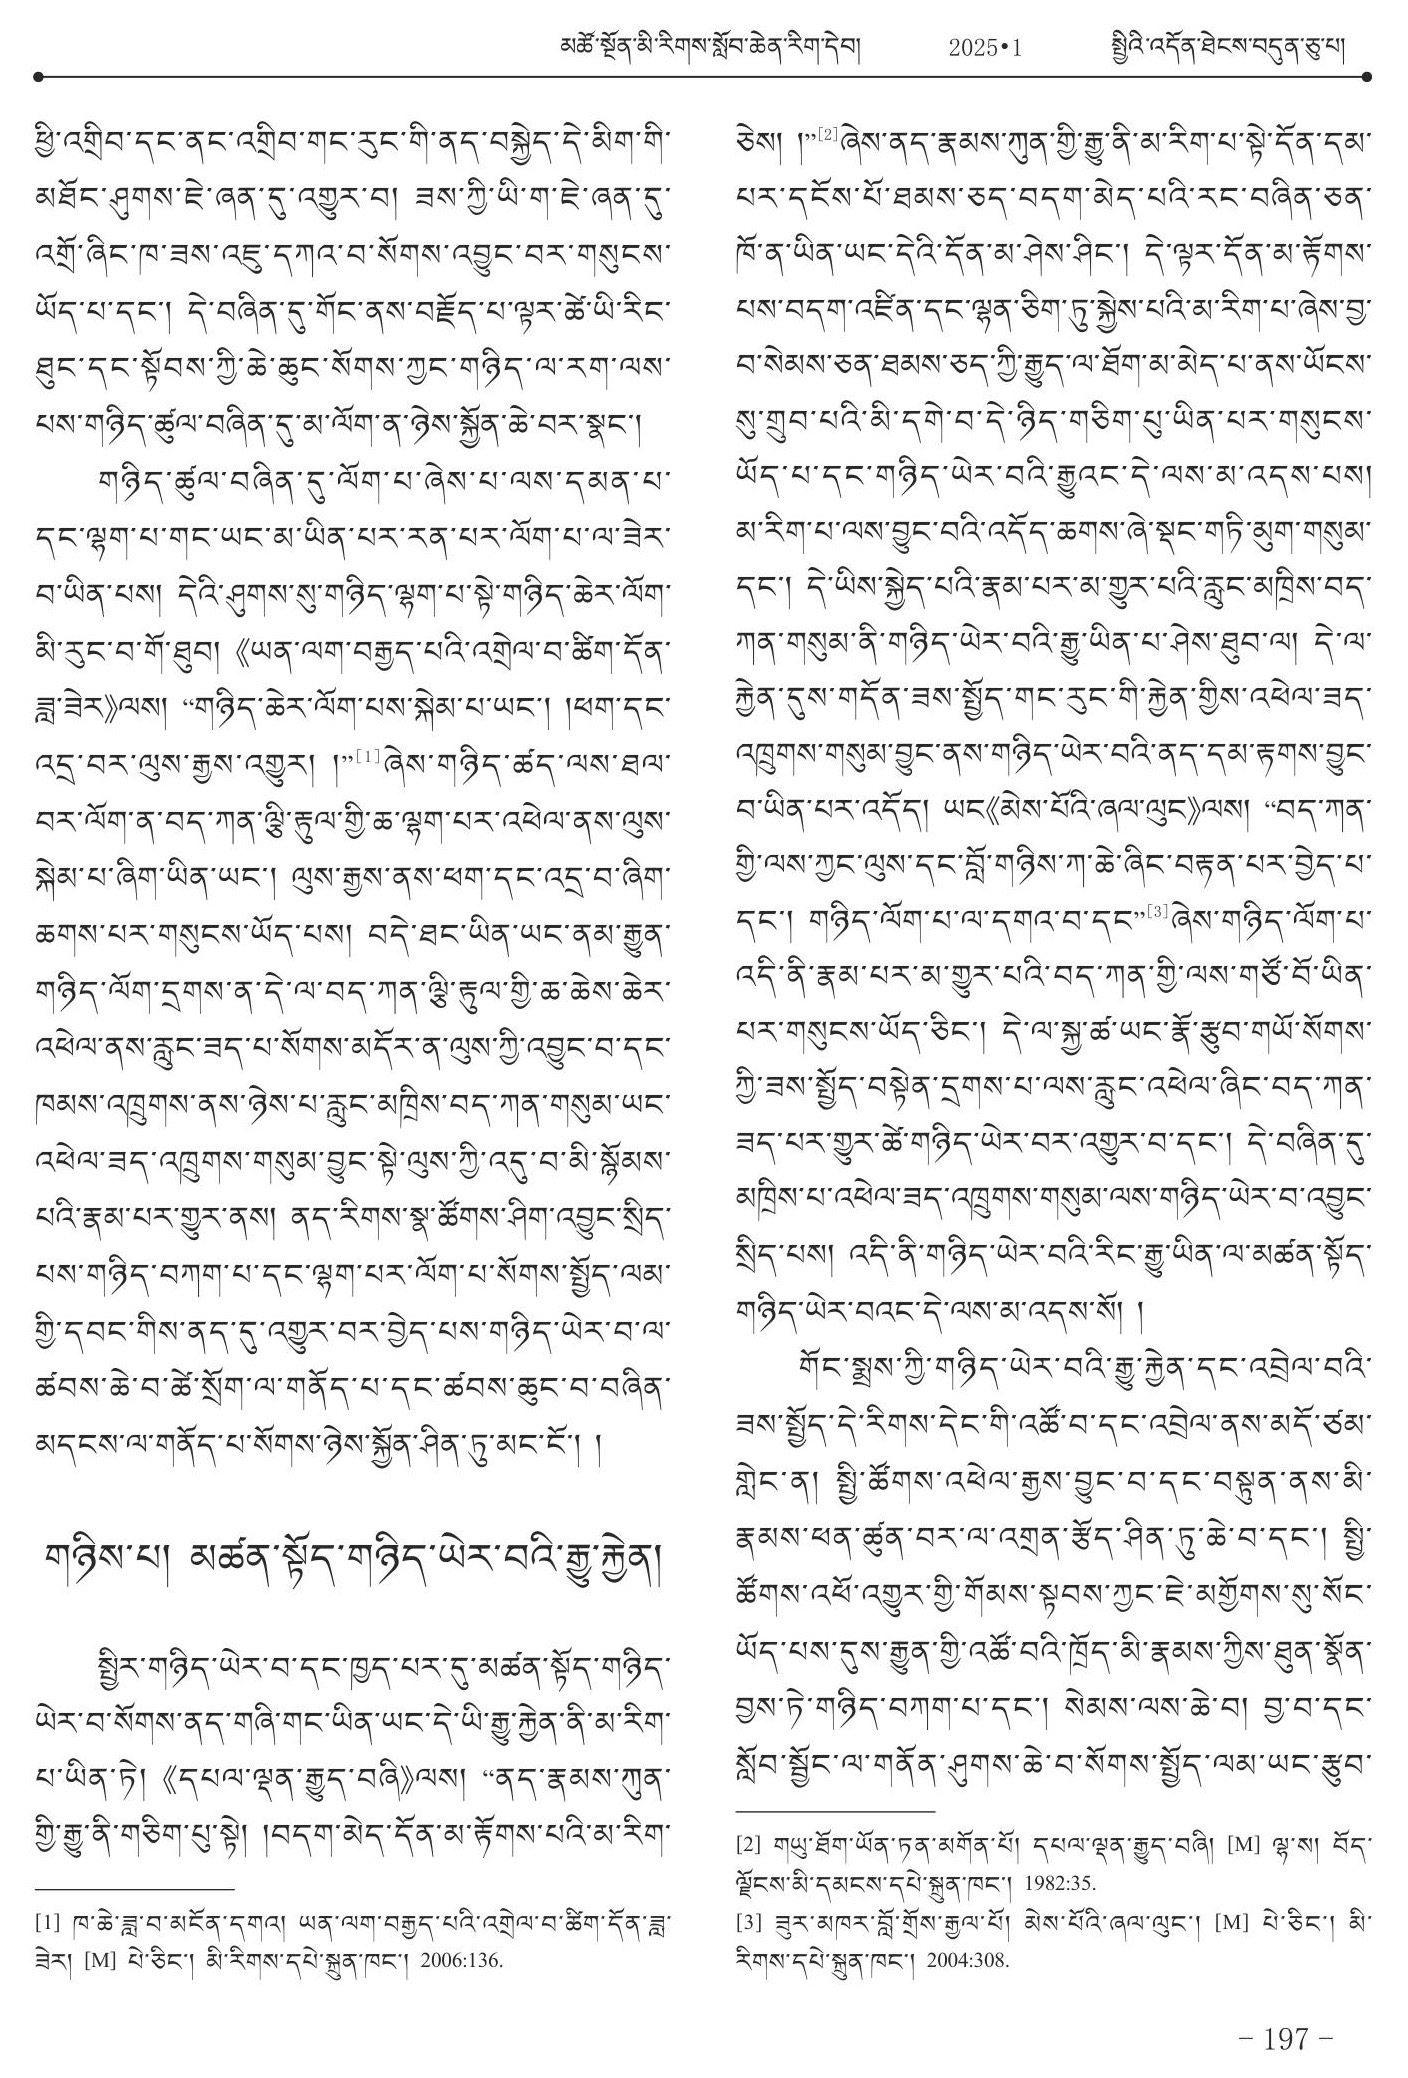 མཚོ་སྔོན་མི་རིགས་སློབ་ཆེན་རིག་དེབ། 2025•1 སྤྱིའི་འདོན་ཐེངས་བདུན་ཅུ་པ།
ཕྱི་འགྲིབ་དང་ནང་འགྲིབ་གང་རུང་གི་ནད་བསྐྱེད་དེ་མིག་གི་
མཐོང་ཤུགས་ཇེ་ཞན་དུ་འགྱུར་བ། ཟས་ཀྱི་ཡི་ག་ཇེ་ཞན་དུ་
འགྲོ་ཞིང་ཁ་ཟས་འཇུ་དཀའ་བ་སོགས་འབྱུང་བར་གསུངས་
ཡོད་པ་དང་། དེ་བཞིན་དུ་གོང་ནས་བརྗོད་པ་ལྟར་ཚེ་ཡི་རིང་
ཐུང་དང་སྟོབས་ཀྱི་ཆེ་ཆུང་སོགས་ཀྱང་གཉིད་ལ་རག་ལས་
པས་གཉིད་ཚུལ་བཞིན་དུ་མ་ལོག་ན་ཉེས་སྐྱོན་ཆེ་བར་སྣང་།
གཉིད་ཚུལ་བཞིན་དུ་ལོག་པ་ཞེས་པ་ལས་དམན་པ་
དང་ལྷག་པ་གང་ཡང་མ་ཡིན་པར་རན་པར་ལོག་པ་ལ་ཟེར་
བ་ཡིན་པས། དེའི་ཤུགས་སུ་གཉིད་ལྷག་པ་སྟེ་གཉིད་ཆེར་ལོག་
མི་རུང་བ་གོ་ཐུབ། 《ཡན་ལག་བརྒྱད་པའི་འགྲེལ་བ་ཚིག་དོན་
ཟླ་ཟེར》ལས། “གཉིད་ཆེར་ལོག་པས་སྐེམ་པ་ཡང་། །ཕག་དང་
འདྲ་བར་ལུས་རྒྱས་འགྱུར། །”[1]ཞེས་གཉིད་ཚད་ལས་ཐལ་
བར་ལོག་ན་བད་ཀན་ལྕི་རྟུལ་གྱི་ཆ་ལྷག་པར་འཕེལ་ནས་ལུས་
སྐེམ་པ་ཞིག་ཡིན་ཡང་། ལུས་རྒྱས་ནས་ཕག་དང་འདྲ་བ་ཞིག་
ཆགས་པར་གསུངས་ཡོད་པས། བདེ་ཐང་ཡིན་ཡང་ནམ་རྒྱུན་
གཉིད་ལོག་དྲགས་ན་དེ་ལ་བད་ཀན་ལྕི་རྟུལ་གྱི་ཆ་ཆེས་ཆེར་
འཕེལ་ནས་རླུང་ཟད་པ་སོགས་མདོར་ན་ལུས་ཀྱི་འབྱུང་བ་དང་
ཁམས་འཁྲུགས་ནས་ཉེས་པ་རླུང་མཁྲིས་བད་ཀན་གསུམ་ཡང་
འཕེལ་ཟད་འཁྲུགས་གསུམ་བྱུང་སྟེ་ལུས་ཀྱི་འདུ་བ་མི་སྙོམས་
པའི་རྣམ་པར་གྱུར་ནས། ནད་རིགས་སྣ་ཚོགས་ཤིག་འབྱུང་སྲིད་
པས་གཉིད་བཀག་པ་དང་ལྷག་པར་ལོག་པ་སོགས་སྤྱོད་ལམ་
གྱི་དབང་གིས་ནད་དུ་འགྱུར་བར་བྱེད་པས་གཉིད་ཡེར་བ་ལ་
ཚབས་ཆེ་བ་ཚེ་སྲོག་ལ་གནོད་པ་དང་ཚབས་ཆུང་བ་བཞིན་
མདངས་ལ་གནོད་པ་སོགས་ཉེས་སྐྱོན་ཤིན་ཏུ་མང་ངོ་། །
གཉིས་པ། མཚན་སྟོད་གཉིད་ཡེར་བའི་རྒྱུ་རྐྱེན།
སྤྱིར་གཉིད་ཡེར་བ་དང་ཁྱད་པར་དུ་མཚན་སྟོད་གཉིད་
ཡེར་བ་སོགས་ནད་གཞི་གང་ཡིན་ཡང་དེ་ཡི་རྒྱུ་རྐྱེན་ནི་མ་རིག་
པ་ཡིན་ཏེ། 《དཔལ་ལྡན་རྒྱུད་བཞི》ལས། “ནད་རྣམས་ཀུན་
གྱི་རྒྱུ་ནི་གཅིག་པུ་སྟེ། །བདག་མེད་དོན་མ་རྟོགས་པའི་མ་རིག་
[1] ཁ་ཆེ་ཟླ་བ་མངོན་དགའ། ཡན་ལག་བརྒྱད་པའི་འགྲེལ་བ་ཚིག་དོན་ཟླ་
ཟེར། [M] པེ་ཅིང་། མི་རིགས་དཔེ་སྐྲུན་ཁང་། 2006:136.
ཅེས། །”[2]ཞེས་ནད་རྣམས་ཀུན་གྱི་རྒྱུ་ནི་མ་རིག་པ་སྟེ་དོན་དམ་
པར་དངོས་པོ་ཐམས་ཅད་བདག་མེད་པའི་རང་བཞིན་ཅན་
ཁོ་ན་ཡིན་ཡང་དེའི་དོན་མ་ཤེས་ཤིང་། དེ་ལྟར་དོན་མ་རྟོགས་
པས་བདག་འཛིན་དང་ལྷན་ཅིག་ཏུ་སྐྱེས་པའི་མ་རིག་པ་ཞེས་བྱ་
བ་སེམས་ཅན་ཐམས་ཅད་ཀྱི་རྒྱུད་ལ་ཐོག་མ་མེད་པ་ནས་ཡོངས་
སུ་གྲུབ་པའི་མི་དགེ་བ་དེ་ཉིད་གཅིག་པུ་ཡིན་པར་གསུངས་
ཡོད་པ་དང་གཉིད་ཡེར་བའི་རྒྱུའང་དེ་ལས་མ་འདས་པས།
མ་རིག་པ་ལས་བྱུང་བའི་འདོད་ཆགས་ཞེ་སྡང་གཏི་མུག་གསུམ་
དང་། དེ་ཡིས་སྐྱེད་པའི་རྣམ་པར་མ་གྱུར་པའི་རླུང་མཁྲིས་བད་
ཀན་གསུམ་ནི་གཉིད་ཡེར་བའི་རྒྱུ་ཡིན་པ་ཤེས་ཐུབ་ལ། དེ་ལ་
རྐྱེན་དུས་གདོན་ཟས་སྤྱོད་གང་རུང་གི་རྐྱེན་གྱིས་འཕེལ་ཟད་
འཁྲུགས་གསུམ་བྱུང་ནས་གཉིད་ཡེར་བའི་ནད་དམ་རྟགས་བྱུང་
བ་ཡིན་པར་འདོད། ཡང《མེས་པོའི་ཞལ་ལུང》ལས། “བད་ཀན་
གྱི་ལས་ཀྱང་ལུས་དང་བློ་གཉིས་ཀ་ཆེ་ཞིང་བརྟན་པར་བྱེད་པ་
དང་། གཉིད་ལོག་པ་ལ་དགའ་བ་དང”[3]ཞེས་གཉིད་ལོག་པ་
འདི་ནི་རྣམ་པར་མ་གྱུར་པའི་བད་ཀན་གྱི་ལས་གཙོ་བོ་ཡིན་
པར་གསུངས་ཡོད་ཅིང་། དེ་ལ་སྐྱ་ཚ་ཡང་རྣོ་རྩུབ་གཡོ་སོགས་
ཀྱི་ཟས་སྤྱོད་བསྟེན་དྲགས་པ་ལས་རླུང་འཕེལ་ཞིང་བད་ཀན་
ཟད་པར་གྱུར་ཚེ་གཉིད་ཡེར་བར་འགྱུར་བ་དང་། དེ་བཞིན་དུ་
མཁྲིས་པ་འཕེལ་ཟད་འཁྲུགས་གསུམ་ལས་གཉིད་ཡེར་བ་འབྱུང་
སྲིད་པས། འདི་ནི་གཉིད་ཡེར་བའི་རིང་རྒྱུ་ཡིན་ལ་མཚན་སྟོད་
གཉིད་ཡེར་བའང་དེ་ལས་མ་འདས་སོ། །
གོང་སྨྲས་ཀྱི་གཉིད་ཡེར་བའི་རྒྱུ་རྐྱེན་དང་འབྲེལ་བའི་
ཟས་སྤྱོད་དེ་རིགས་དེང་གི་འཚོ་བ་དང་འབྲེལ་ནས་མདོ་ཙམ་
གླེང་ན། སྤྱི་ཚོགས་འཕེལ་རྒྱས་བྱུང་བ་དང་བསྟུན་ནས་མི་
རྣམས་ཕན་ཚུན་བར་ལ་འགྲན་རྩོད་ཤིན་ཏུ་ཆེ་བ་དང་། སྤྱི་
ཚོགས་འཕོ་འགྱུར་གྱི་གོམས་སྟབས་ཀྱང་ཇེ་མགྱོགས་སུ་སོང་
ཡོད་པས་དུས་རྒྱུན་གྱི་འཚོ་བའི་ཁྲོད་མི་རྣམས་ཀྱིས་ཐུན་སྣོན་
བྱས་ཏེ་གཉིད་བཀག་པ་དང་། སེམས་ལས་ཆེ་བ། བྱ་བ་དང་
སློབ་སྦྱོང་ལ་གནོན་ཤུགས་ཆེ་བ་སོགས་སྤྱོད་ལམ་ཡང་རྩུབ་
[2] གཡུ་ཐོག་ཡོན་ཏན་མགོན་པོ། དཔལ་ལྡན་རྒྱུད་བཞི། [M] ལྷ་ས། བོད་
ལྗོངས་མི་དམངས་དཔེ་སྐྲུན་ཁང་། 1982:35.
[3] ཟུར་མཁར་བློ་གྲོས་རྒྱལ་པོ། མེས་པོའི་ཞལ་ལུང་། [M] པེ་ཅིང་། མི་
རིགས་དཔེ་སྐྲུན་ཁང་། 2004:308.
– 197 –